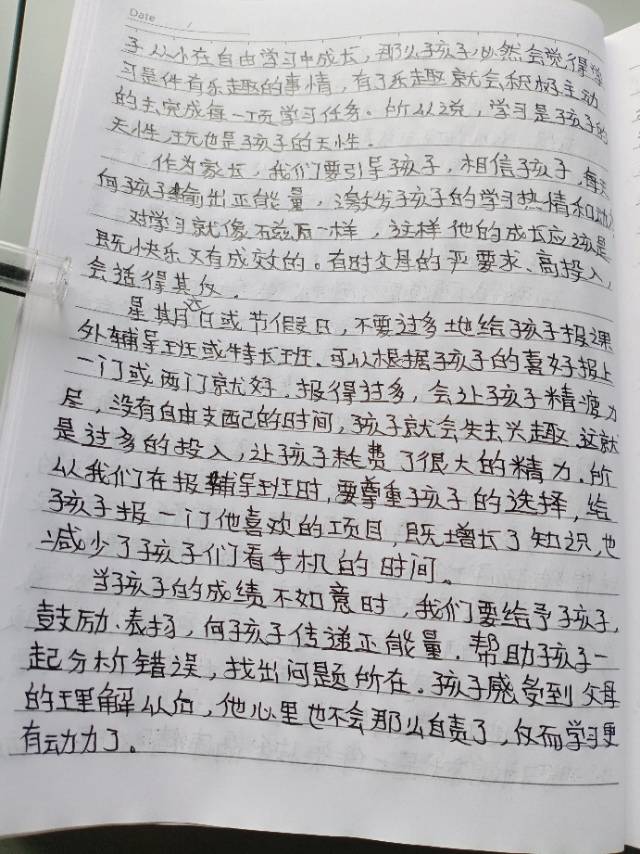 Date
子从小在自由学习中成长，那么孩子必然会觉得学
习是件有乐趣的事情，有了乐趣就会积极主动
的去完成每一项学习任务。所以说，学习是孩子的
天性，玩也是孩子的天性.
作为家长，我们要引导孩子，相信孩子，每天
向孩子输出正能量，激发孩子的学习热情和动力
对学习就像玩一样，这样他的成长应该是
既快乐又有成效的。有时父母的严要求、高投入，
会适得其反.
星期六日或节假日，不要过多地给孩子报课
外辅导班或特长班.可以根据孩子的喜好报上
一门或两门就好.报得过多，会让孩子精疲力
尽，没有自由支配的时间，孩子就会失去兴趣.这就
是过多的投入，让孩子耗费了很大的精力.所
以我们在报辅导班时，要尊重孩子的选择，给
孩子报一门他喜欢的项目，既增长了知识，也
减少了孩子们看手机的时间。
当孩子的成绩不如意时，我们要给予孩子，
鼓励、表扬，向孩子传递正能量.帮助孩子一
起分析错误，找出问题所在.孩子感受到父母
的理解以后，他心里也不会那么自责了，反而学习更
有动力了。